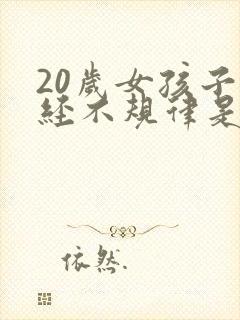 20歲女孩子
經不規律是
依然.